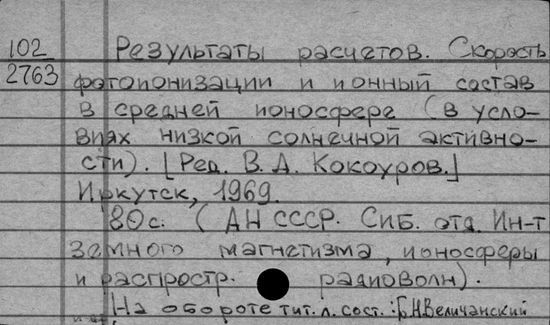 102 Результаты расчетов. Скорость
2763 фотоионизации и ионный состав
в средней ионосфере (в усло-
виях низкой солнечной активно-
сти). [Ред. В. Д. Кокоуров.]
Иркутск, 1969.
80с. (АН СССР. Сиб. отд. Ин-т
земного магнетизма, ионосферы
и распростр. радиоволн).
На обороте тит. л. сост.: Б.Н.Величанский